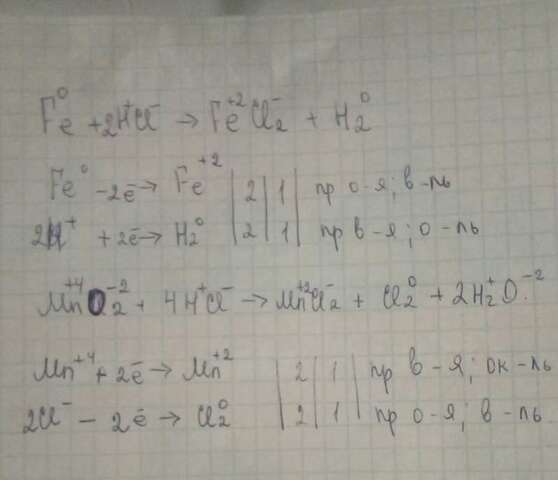 Fe⁰ + 2H⁺Cl⁻ → Fe⁺²Cl₂⁻ + H₂⁰
Fe⁰ - 2ē → Fe⁺² | 2 | 1 | пр о-я; в-ль
2H⁺ + 2ē → H₂⁰ | 2 | 1 | пр в-я; о-ль
Mn⁺⁴O₂⁻² + 4H⁺Cl⁻ → Mn⁺²Cl₂⁻ + Cl₂⁰ + 2H₂⁺O⁻².
Mn⁺⁴ + 2ē → Mn⁺² | 2 | 1 | пр в-я; ок-ль
2Cl⁻ - 2ē → Cl₂⁰ | 2 | 1 | пр о-я; в-ль.